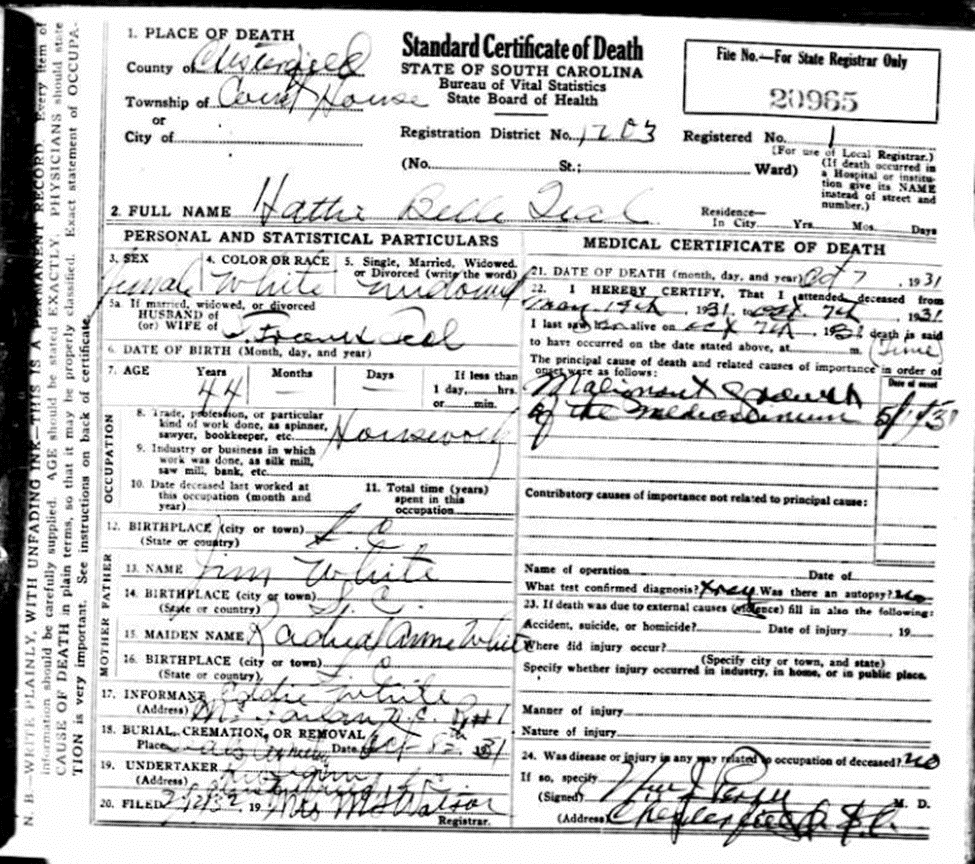 N. B.—WRITE PLAINLY, WITH UNFADING INK—THIS IS A PERMANENT RECORD. Every item of
information should be carefully supplied. AGE should be stated EXACTLY. PHYSICIANS should state
CAUSE OF DEATH in plain terms, so that it may be properly classified. Exact statement of OCCUPA-
TION is very important. See instructions on back of certificate.
1. PLACE OF DEATH
County of Chesterfield
Township of Court House
or
City of
Standard Certificate of Death
STATE OF SOUTH CAROLINA
Bureau of Vital Statistics
State Board of Health
File No.—For State Registrar Only
20965
Registration District No. 1203
Registered No. 1
(For use of Local Registrar.)
(No. St.; Ward)
(If death occurred in
a Hospital or institu-
tion give its NAME
instead of street and
number.)
2. FULL NAME Hattie Belle Teal
Residence—
In City Yrs. Mos. Days
PERSONAL AND STATISTICAL PARTICULARS
3. SEX
female
4. COLOR OR RACE
White
5. Single, Married, Widowed,
or Divorced (write the word)
widowed
5a. If married, widowed, or divorced
HUSBAND of
(or) WIFE of Frank Teal
6. DATE OF BIRTH (Month, day, and year)
7. AGE Years Months Days If less than
44 — — 1 day, hrs.
or min.
OCCUPATION
8. Trade, profession, or particular
kind of work done, as spinner,
sawyer, bookkeeper, etc. Housework
9. Industry or business in which
work was done, as silk mill,
saw mill, bank, etc.
10. Date deceased last worked at
this occupation (month and
year)
11. Total time (years)
spent in this
occupation
12. BIRTHPLACE (city or town) S. C.
(State or country)
FATHER
13. NAME Jim White
14. BIRTHPLACE (city or town) S. C.
(State or country)
MOTHER
15. MAIDEN NAME Rachel Anne White
16. BIRTHPLACE (city or town)
(State or country)
17. INFORMANT Eddie White
(Address) McFarlan N.C. R#1
18. BURIAL, CREMATION, OR REMOVAL
Place Date Oct 8th 31
19. UNDERTAKER
(Address)
20. FILED 19 Mrs M Watson
Registrar.
MEDICAL CERTIFICATE OF DEATH
21. DATE OF DEATH (month, day, and year) Oct 7, 1931
22. I HEREBY CERTIFY, That I attended deceased from
May 19th, 1931, to Oct. 7th, 1931
I last saw her alive on Oct 7th, 1931 death is said
to have occurred on the date stated above, at m. (Time)
The principal cause of death and related causes of importance in order of
onset were as follows:
Date of onset
Malignant growth
of the Mediastinum
Contributory causes of importance not related to principal cause:
Name of operation Date of
What test confirmed diagnosis? Xray Was there an autopsy? no
23. If death was due to external causes (violence) fill in also the following:
Accident, suicide, or homicide? Date of injury , 19
Where did injury occur?
(Specify city or town, and state)
Specify whether injury occurred in industry, in home, or in public place.
Manner of injury
Nature of injury
24. Was disease or injury in any way related to occupation of deceased? no
If so, specify
(Signed) M. D.
(Address) Chesterfield S.C.